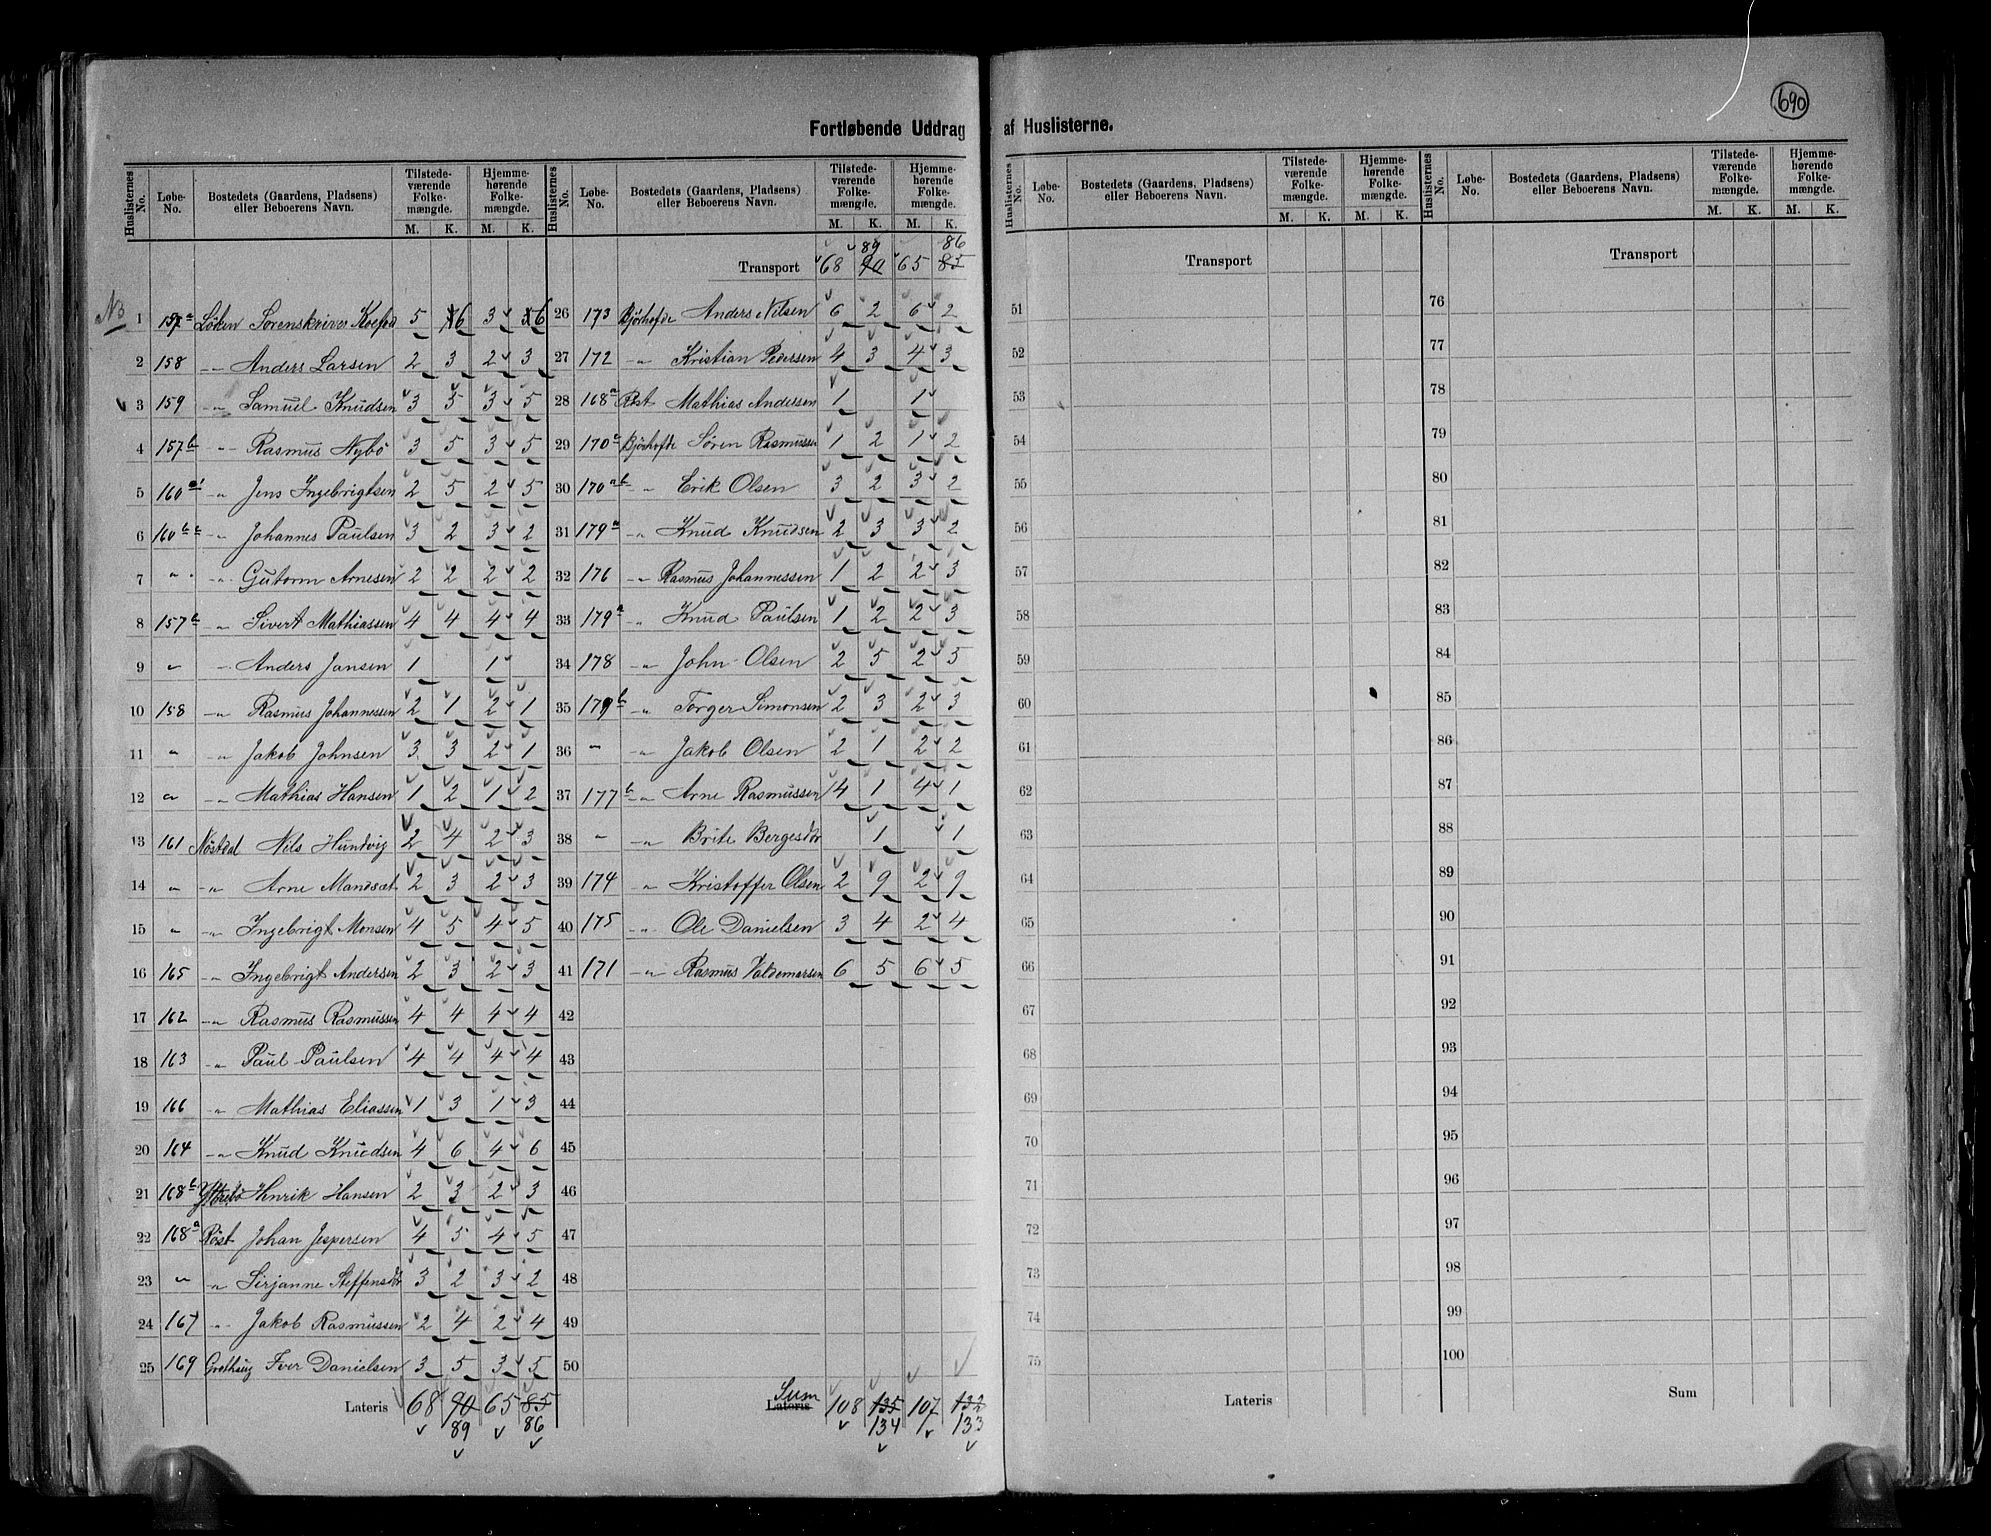 690
Fortløbende Uddrag af Huslisterne.
Huslisternes No. Løbe-No. Bostedets (Gaardens, Pladsens) eller Beboerens Navn. Tilstede-værende Folke-mængde. M. K. Hjemme-hørende Folke-mængde. M. K.
NB 1 157a Löken Sorenskriver Koefod 5 6 3 6
2 158 -"- Anders Larsen 2 3 2 3
3 159 -"- Samuel Knudsen 3 5 3 5
4 157b -"- Rasmus Nybö 3 5 3 5
5 160a1 -"- Jens Ingebrigtsen 2 5 2 5
6 160b -"- Johannes Paulsen 3 2 3 2
7 " -"- Gutorm Arnesen 2 2 2 2
8 157b -"- Sivert Mathiassen 4 4 4 4
9 " -"- Anders Jansen 1 1
10 158 -"- Rasmus Johannessen 2 1 2 1
11 " -"- Jakob Johnsen 3 3 2 1
12 " -"- Mathias Hansen 1 2 1 2
13 161 Nöstdal Nils Hundvig 2 4 2 3
14 " -"- Arne Mandsæt 2 3 2 3
15 " -"- Ingebrigt Monsen 4 5 4 5
16 165 -"- Ingebrigt Andersen 2 3 2 3
17 162 -"- Rasmus Rasmussen 4 4 4 4
18 163 -"- Paul Paulsen 4 4 4 4
19 166 -"- Mathias Eliassen 1 3 1 3
20 164 -"- Knud Knudsen 4 6 4 6
21 168b Ytrebö Henrik Hansen 2 3 2 3
22 168a Röst Johan Jespersen 4 5 4 5
23 " -"- Sirjanne Steffensdtr 3 2 3 2
24 167 -"- Jakob Rasmussen 2 4 2 4
25 169 Iver Danielsen 3 5 3 5
Lateris 68 90 65 85
89 86
Huslisternes No. Løbe-No. Bostedets (Gaardens, Pladsens) eller Beboerens Navn. Tilstede-værende Folke-mængde. M. K. Hjemme-hørende Folke-mængde. M. K.
89 86
Transport 68 90 65 85
26 173 Björhofde Anders Nilsen 6 2 6 2
27 172 -"- Kristian Pedersen 4 3 4 3
28 168a Röst Mathias Andersen 1 1
29 170a Björhofde Sören Rasmussen 1 2 1 2
30 170ab -"- Erik Olsen 3 2 3 2
31 179a -"- Knud Knudsen 2 3 3 2
32 176 -"- Rasmus Johannessen 1 2 2 3
33 179a -"- Knud Paulsen 1 2 2 3
34 178 -"- John Olsen 2 5 2 5
35 179b -"- Torger Simonsen 2 3 2 3
36 " -"- Jakob Olsen 2 1 2 2
37 177b -"- Arne Rasmussen 4 1 4 1
38 " -"- Brite Bergesdtr 1 1
39 174 -"- Kristoffer Olsen 2 9 2 9
40 175 -"- Ole Danielsen 3 4 2 4
41 171 -"- Rasmus Valdemarsen 6 5 6 5
42
43
44
45
46
47
48
49
50
Sum
Lateris 108 135 107 132
134 133
Huslisternes No. Løbe-No. Bostedets (Gaardens, Pladsens) eller Beboerens Navn. Tilstede-værende Folke-mængde. M. K. Hjemme-hørende Folke-mængde. M. K.
Transport
51
52
53
54
55
56
57
58
59
60
61
62
63
64
65
66
67
68
69
70
71
72
73
74
75
Lateris
Huslisternes No. Løbe-No. Bostedets (Gaardens, Pladsens) eller Beboerens Navn. Tilstede-værende Folke-mængde. M. K. Hjemme-hørende Folke-mængde. M. K.
Transport
76
77
78
79
80
81
82
83
84
85
86
87
88
89
90
91
92
93
94
95
96
97
98
99
100
Sum